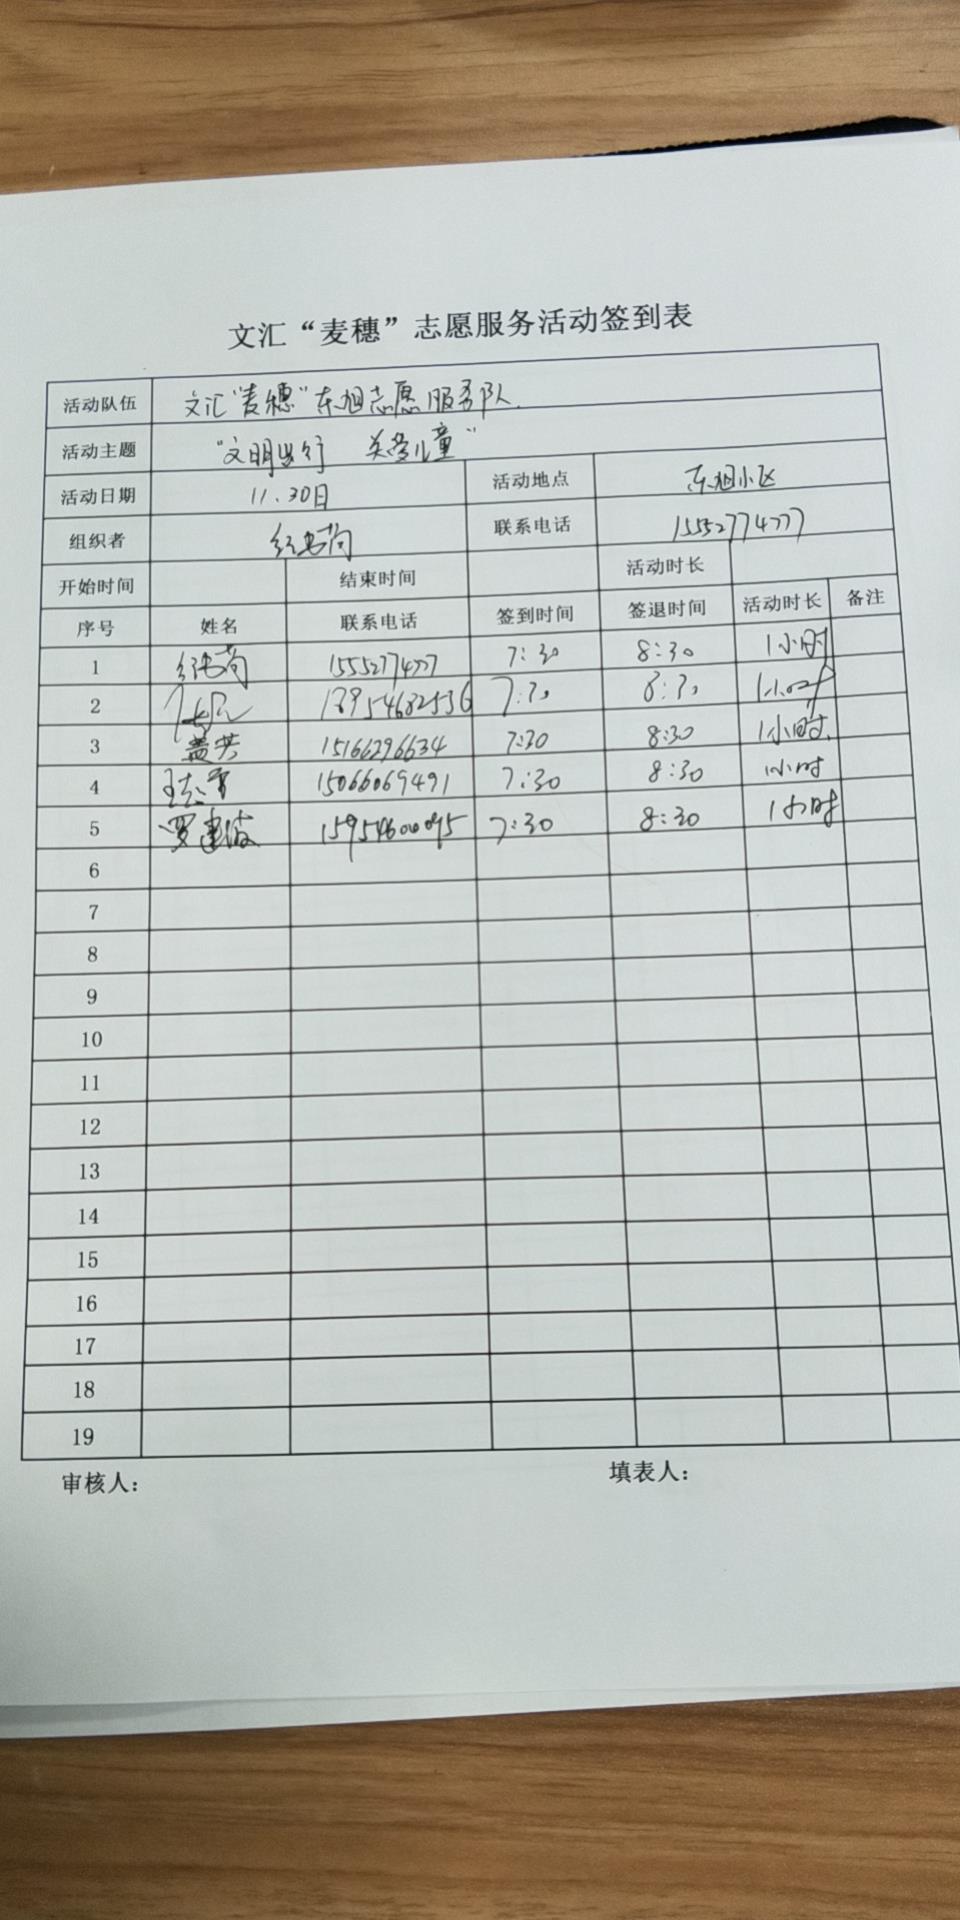 文汇“麦穗”志愿服务活动签到表
活动队伍 文汇“麦穗”东旭志愿服务队.
活动主题 “文明出行 关爱儿童”
活动日期 11.30日 活动地点 东旭小区
组织者 联系电话 15552774777
开始时间 结束时间 活动时长
序号 姓名 联系电话 签到时间 签退时间 活动时长 备注
1 15552774777 7:30 8:30 1小时
2 13954682536 7:30 8:30 1小时
3 盖芸 15166296634 7:30 8:30 1小时.
4 15066069491 7:30 8:30 1小时
5 罗建波 15954600095 7:30 8:30 1小时
6
7
8
9
10
11
12
13
14
15
16
17
18
19
审核人： 填表人：